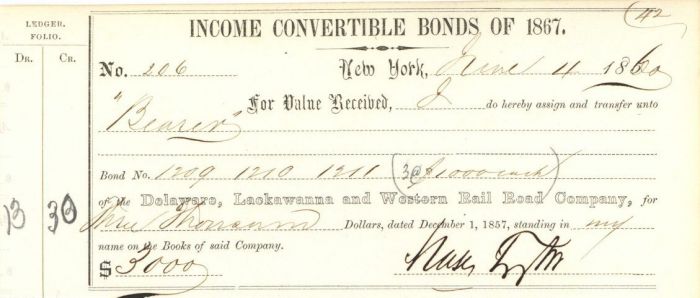 42
LEDGER.
FOLIO.
DR. CR.
INCOME CONVERTIBLE BONDS OF 1867.
No. 206 New York, June 4 1860
For Value Received, I do hereby assign and transfer unto
"Bearer"
Bond No. 1209 1210 1211 (3@ $1000 each)
of the Delaware, Lackawanna and Western Rail Road Company, for
13 30 Three Thousand Dollars, dated December 1, 1857, standing in my
name on the Books of said Company.
$ 3000 Moses Taylor